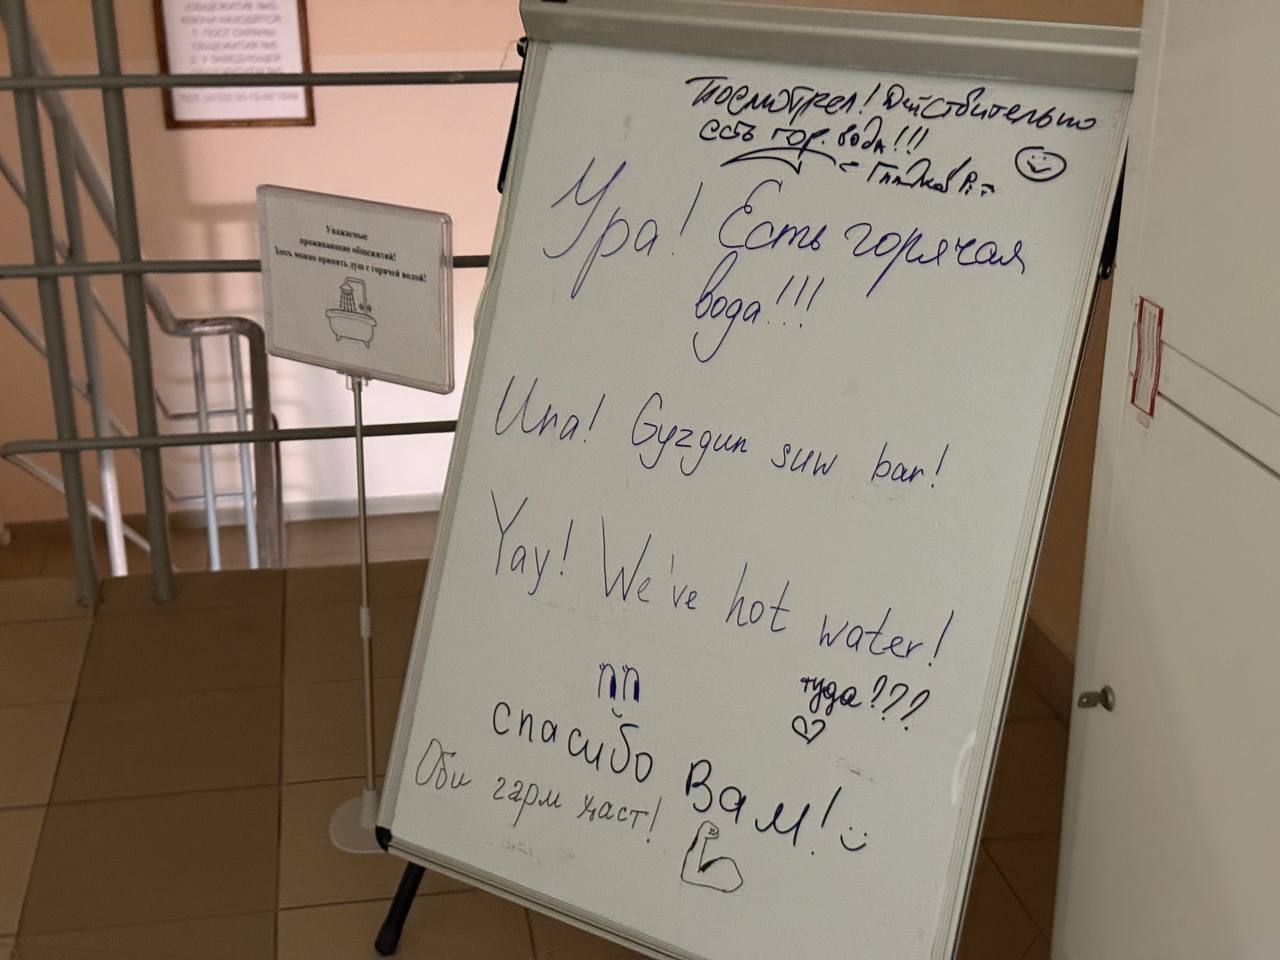 Уважаемые
проживающие общежития!
Здесь можно принять душ с горячей водой!
Посмотрел! Действительно
есть гор. вода!!!
Ура! Есть горячая
вода!!!
Ura! Gyzgyn suw bar!
Yay! We've hot water!
туда???
спасибо Вам!
Оби гарм ҳаст!